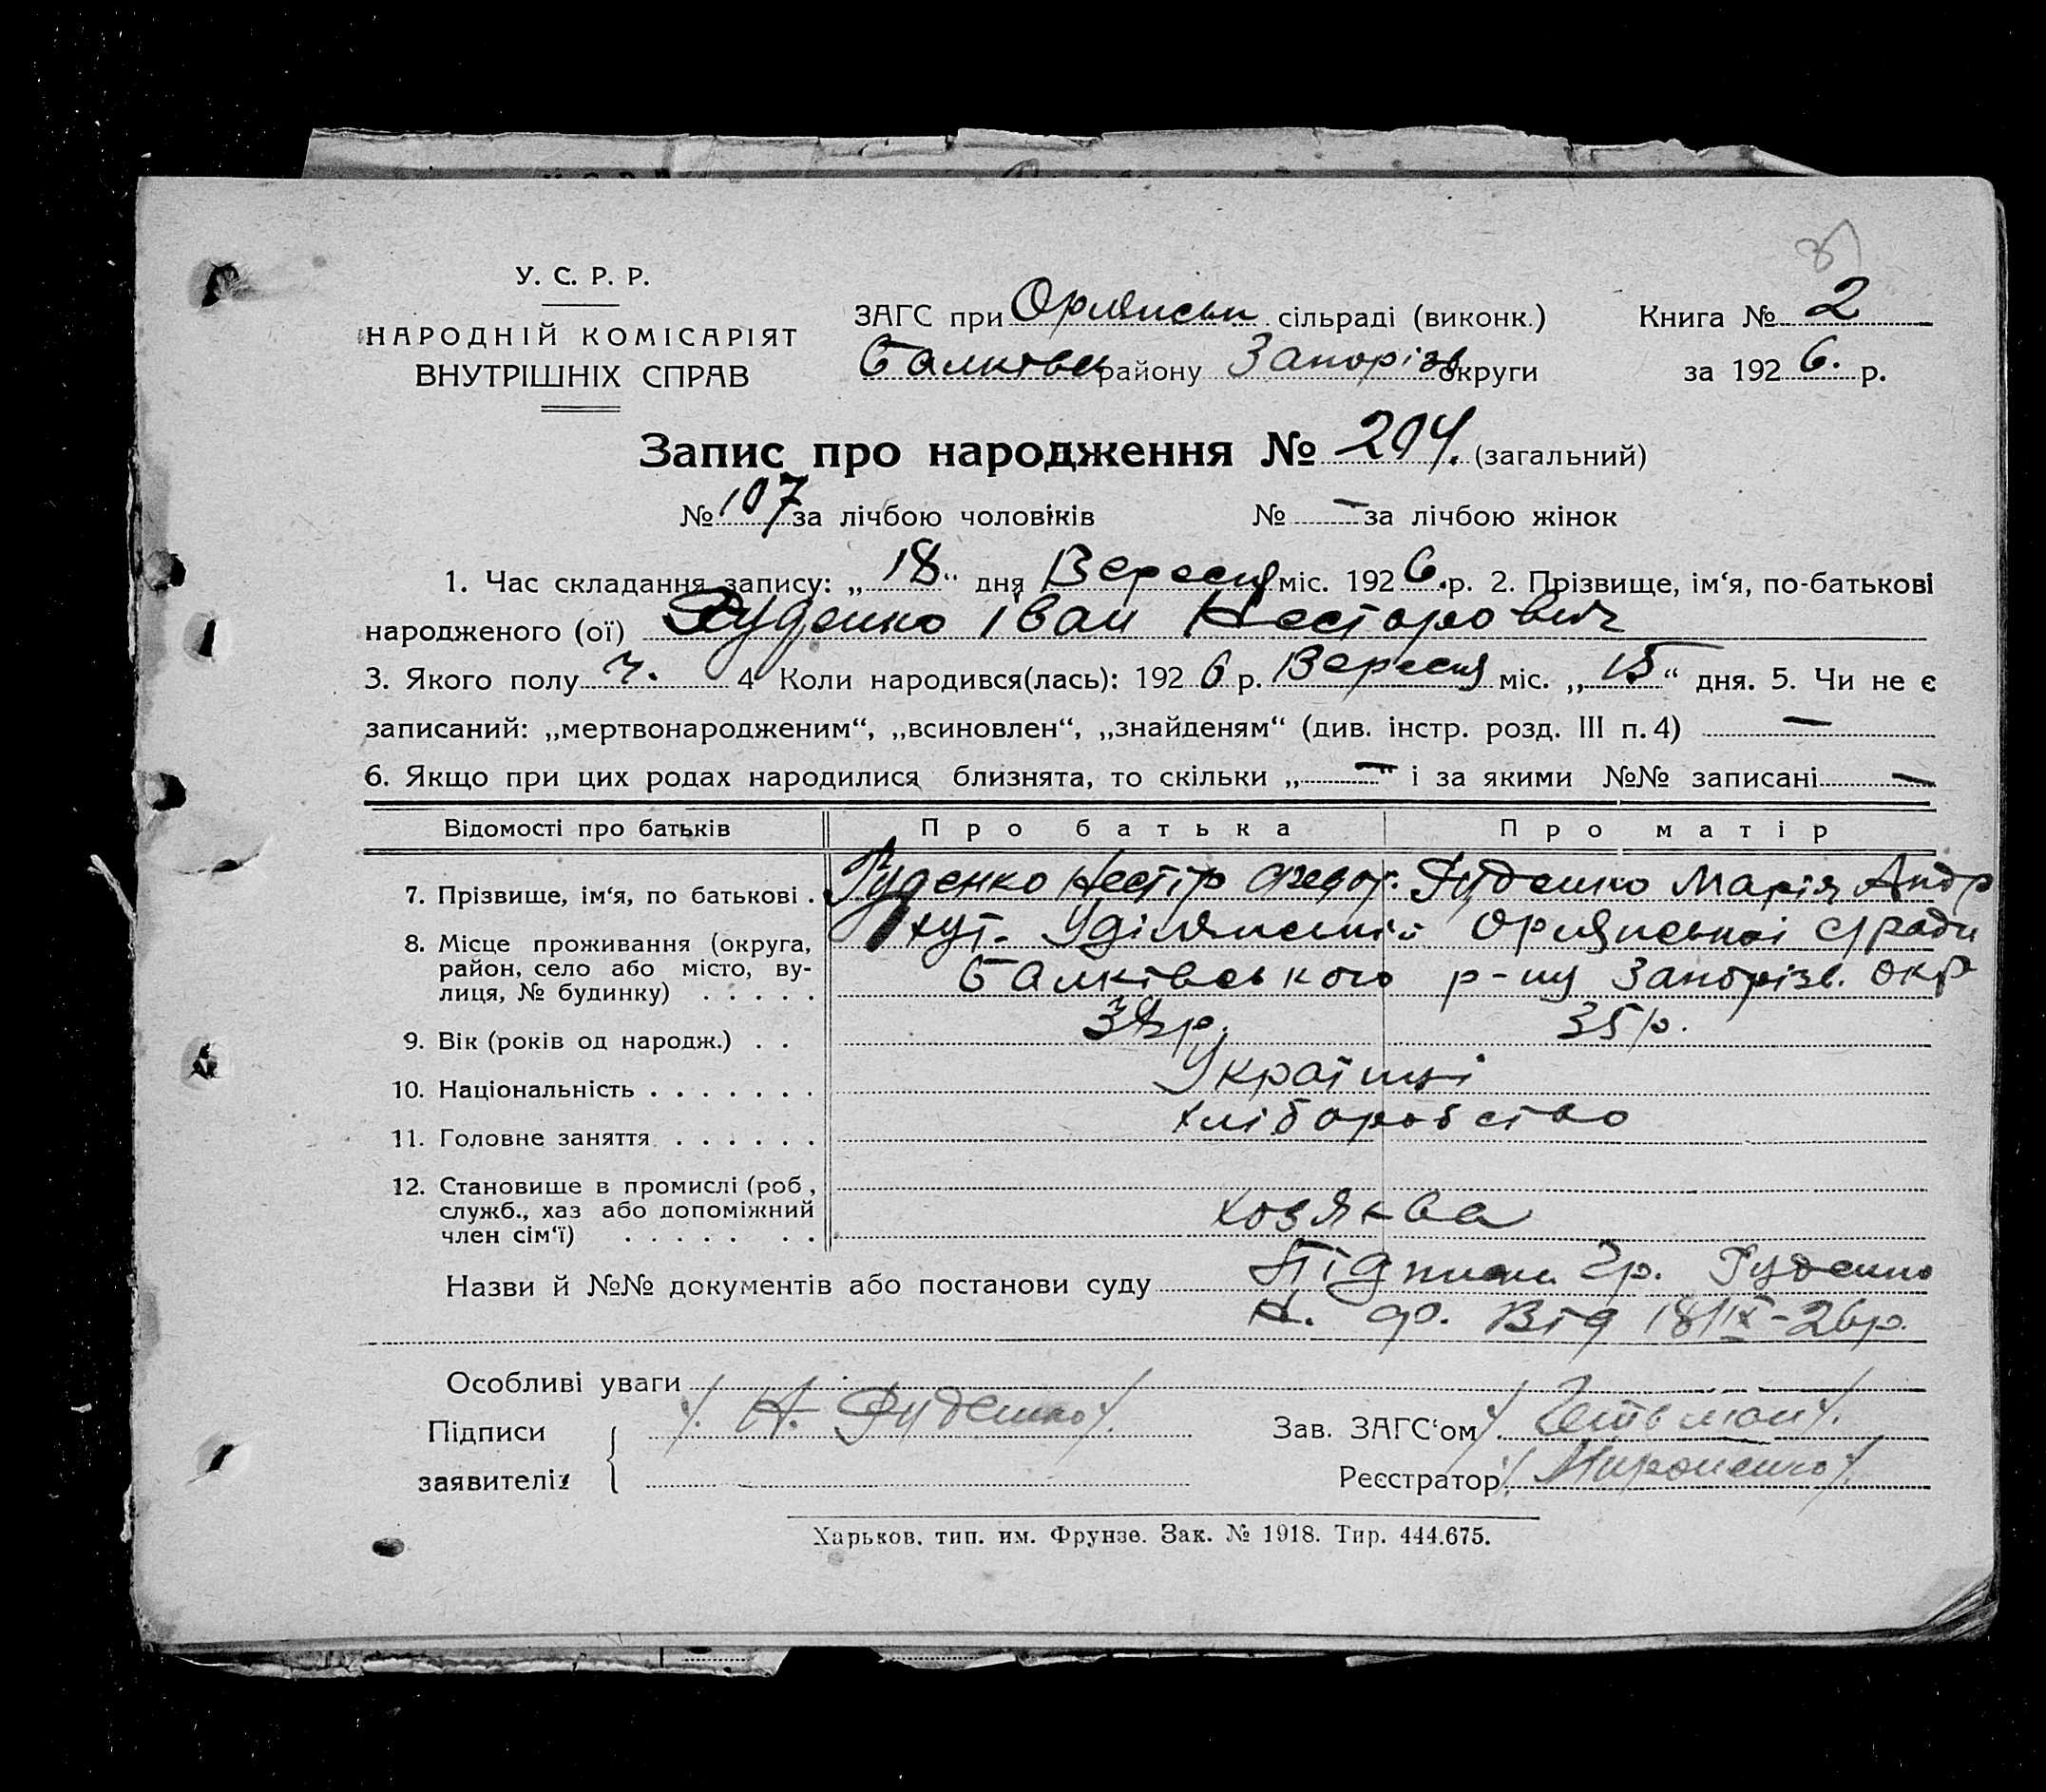 У. С. Р. Р.
НАРОДНІЙ КОМІСАРІЯТ
ВНУТРІШНІХ СПРАВ
ЗАГС при Орлянськ сільраді (виконк.)
Балківськ району Запорізь округи
Книга № 2
за 1926. р.
Запис про народження № 204. (загальний)
№ 107 за лічбою чоловіків № — за лічбою жінок
1. Час складання запису: „18“ дня Вересня міс. 1926.р. 2. Прізвище, ім‘я, по-батькові
народженого (ої) Руденко Іван Несторович
3. Якого полу ч. 4 Коли народився(лась): 1926 р. Вересня міс. „15“ дня. 5. Чи не є
записаний: „мертвонародженим“, „всиновлен“, „знайденям“ (див. інстр. розд. III п. 4) —
6. Якщо при цих родах народилися близнята, то скільки „—“ і за якими №№ записані —
Відомості про батьків Про батька Про матір
7. Прізвище, ім‘я, по батькові . Руденко Нестір Федор. Руденко Марія Андр
8. Місце проживання (округа, район, село або місто, ву-лиця, № будинку) . . . . .
хут. Орлянської с/ради
Балківського р-ну Запорізь. окр
9. Вік (років од народж.) . . 35 р.
10. Національність . . . . . . . Українці
11. Головне заняття . . . . . . хліборобство
12. Становище в промислі (роб, служб., хаз або допоміжний член сім‘ї) . . . . . . . хозяєва
Назви й №№ документів або постанови суду Підписи гр. Руденко
Н. Ф. Від 18/IX-26р.
Особливі уваги
Підписи /. Н. Руденко /.
заявителів
Зав. ЗАГС‘ом /. Гетьман /.
Реєстратор /. Мироненко /.
Харьков, тип. им. Фрунзе. Зак. № 1918. Тир. 444.675.